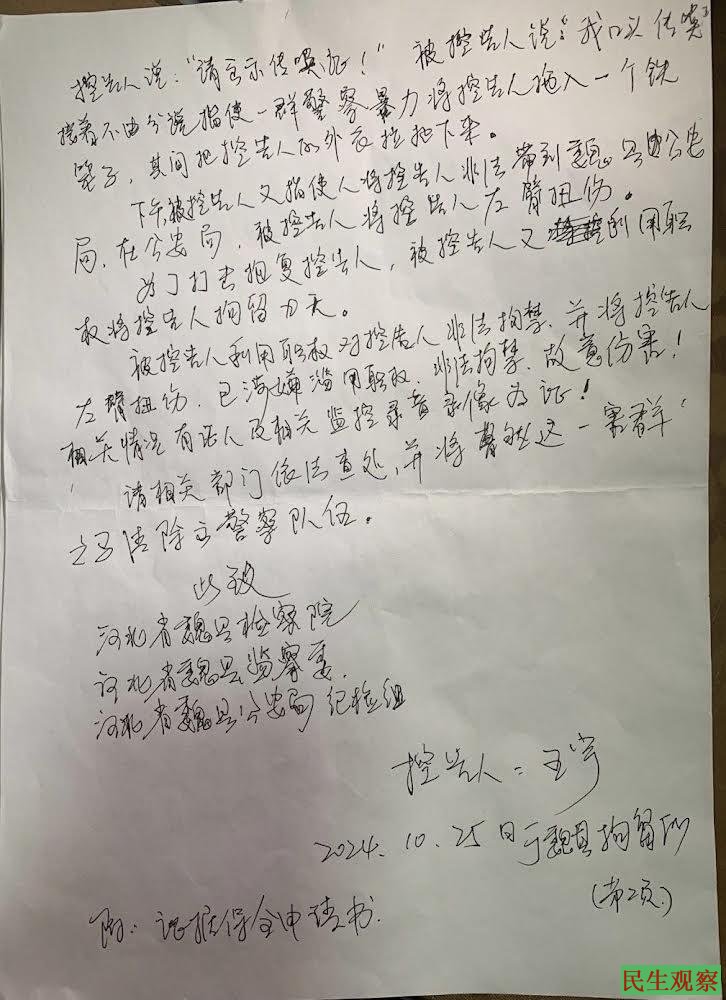 控告人说：“请出示传唤证！” 被控告人说：“我口头传唤”
接着不由分说指使一群警察暴力将控告人拖入一个铁
笼子，其间把控告人的外衣拉扯下来。
下午被控告人又指使人将控告人非法带到魏县公安
局，在公安局，被控告人将控告人左臂扭伤。
为了打击报复控告人，被控告人又利用职
权将控告人拘留九天。
被控告人利用职权对控告人非法拘禁，并将控告人
左臂扭伤，已涉嫌滥用职权、非法拘禁、故意伤害！
相关情况有证人及相关监控录音录像为证！
请相关部门依法查处，并将这一害群
之马清除出警察队伍。
此致
河北省魏县检察院
河北省魏县监察委
河北省魏县公安局纪检组
控告人：王宇
2024.10.25日于魏县拘留所
（第2页）
附：证据保全申请书
民生观察